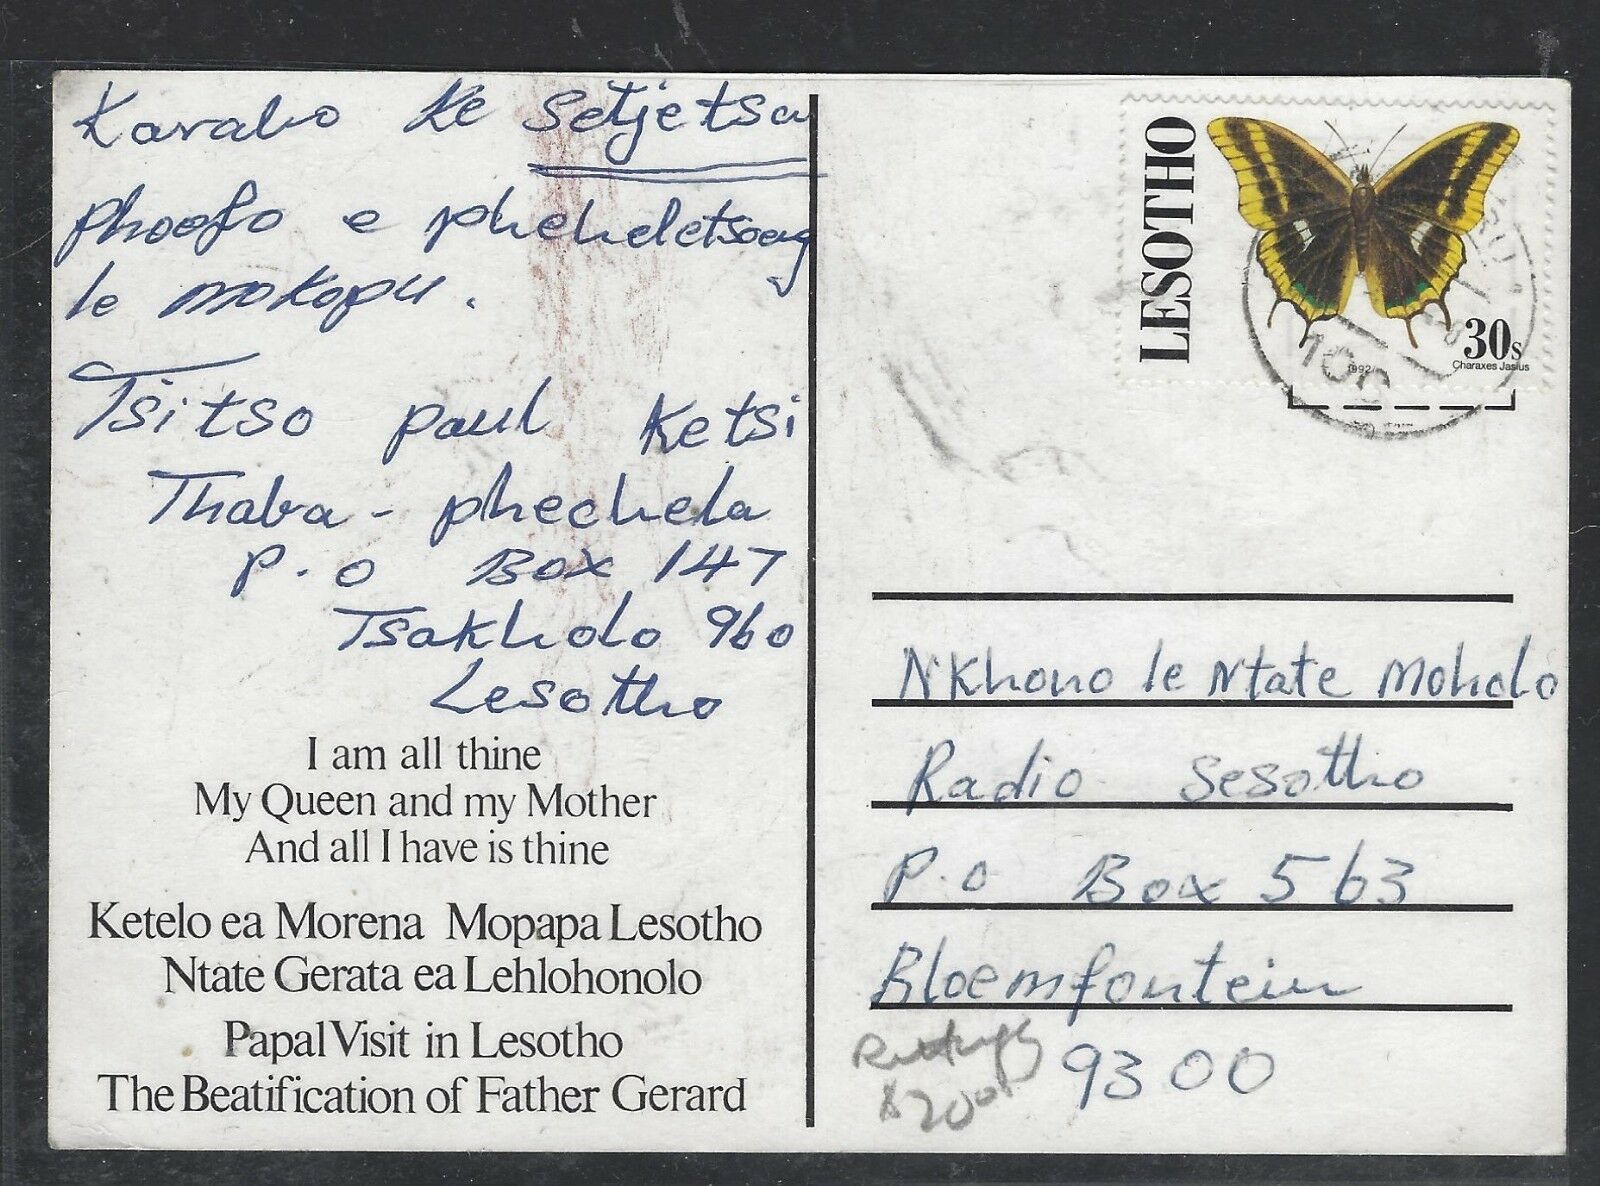 Karabo ke setjetsa
phoofo e pheheletsoeng
le mokopu.
Tsitso paul Ketsi
Thaba - phechela
P.O Box 147
Tsakholo 960
Lesotho
I am all thine
My Queen and my Mother
And all I have is thine
Ketelo ea Morena Mopapa Lesotho
Ntate Gerata ea Lehlohonolo
Papal Visit in Lesotho
The Beatification of Father Gerard
LESOTHO
30s
1992
Charaxes Jasius
Nkhono le Ntate Moholo
Radio Sesotho
P.O Box 563
Bloemfontein
9300
$20